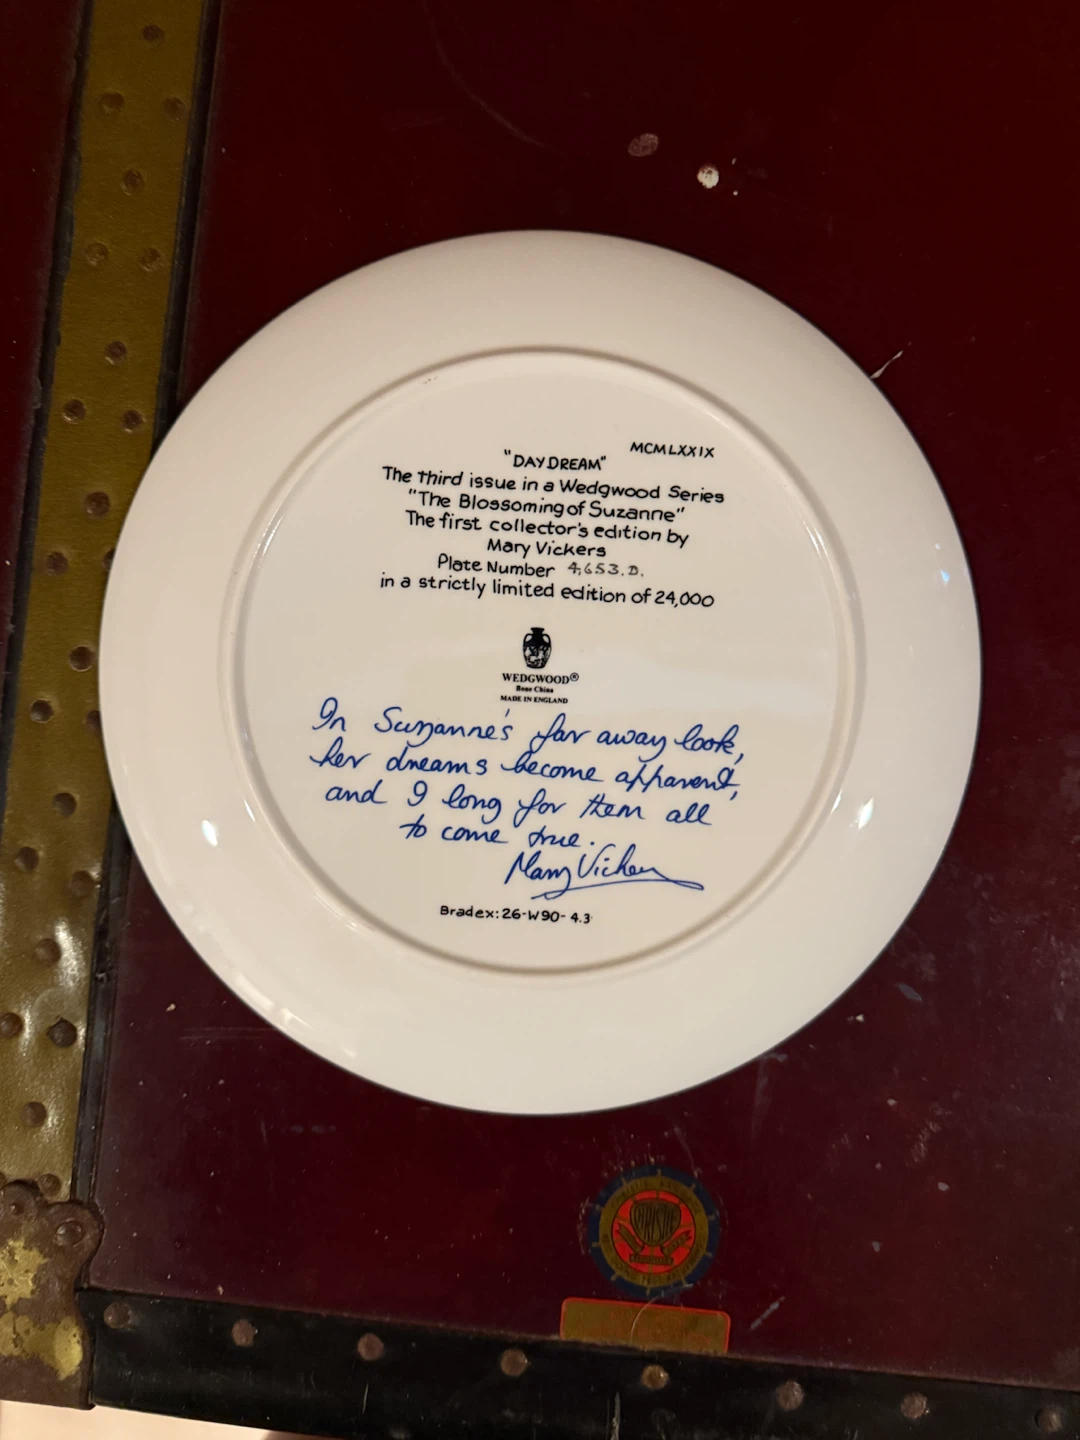 "DAYDREAM" MCMLXXIX
The third issue in a Wedgwood Series
"The Blossoming of Suzanne"
The first collector's edition by
Mary Vickers
Plate Number 4,653.D.
in a strictly limited edition of 24,000
WEDGWOOD®
Bone China
MADE IN ENGLAND
In Suzanne's far away look,
her dreams become apparent,
and I long for them all
to come true.
Mary Vickers
Bradex: 26-W90-4.3